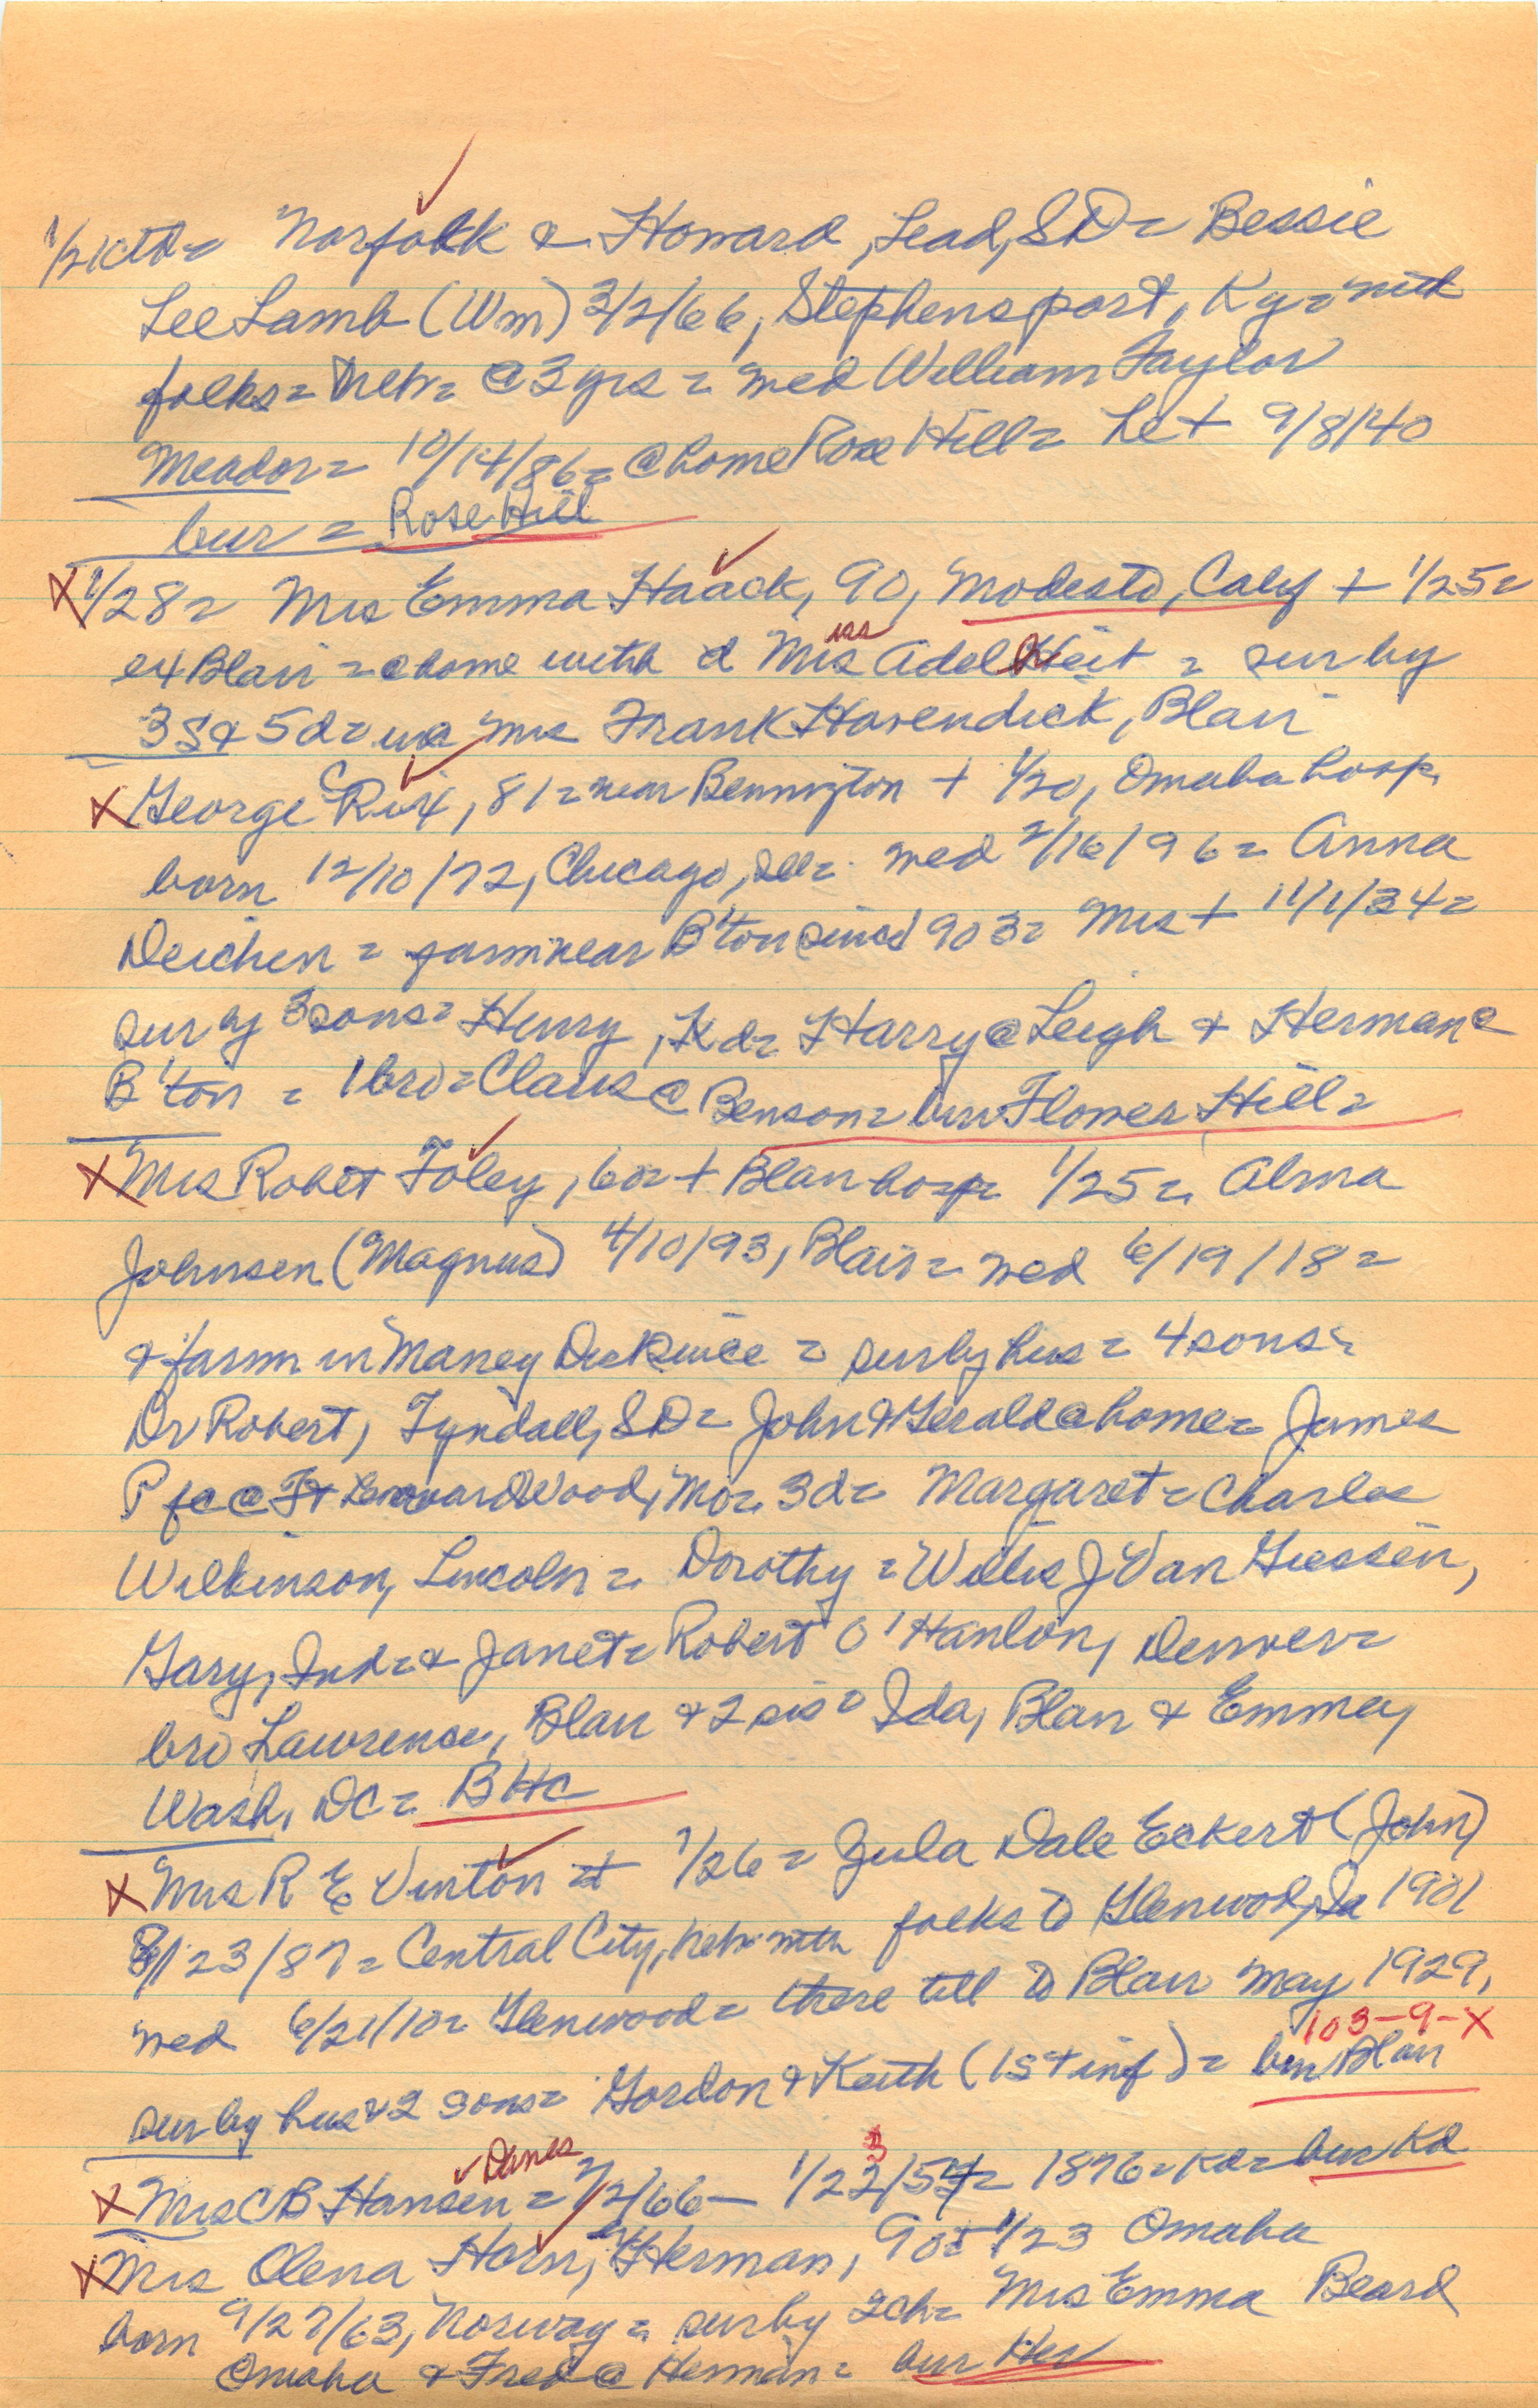 1/21 ctd= Norfolk & Howard, Lead, SD= Bessie
Lee Lamb (Wm) 3/2/66, Stephensport, Ky= with
folks= Neb= @ 3 yrs = wed William Taylor
Meador= 10/14/86= @ home Rose Hill= he + 9/8/40
bur = Rose Hill
X 1/28= Mrs Emma Haack, 90, Modesto, Calif + 1/25=
ex Blair = @ home with d Miss Adelheit = sur by
3S & 5d= Mrs Frank Havendick, Blair
X George C Rix, 81= near Bennington + 1/20, Omaha hosp,
born 12/10/72, Chicago, Ill= wed 2/16/96= Anna
Deichen = farm near B'ton since 1903= Mrs + 11/1/34=
sur by 3 sons= Henry, Kd= Harry @ Leigh & Herman @
B'ton = 1 bro= Claus @ Benson= bur Flower Hill=
X Mrs Robet Foley, 60= + Blair hosp= 1/25= Alma
Johnsen (Magnus) 4/10/93, Blair= wed 6/19/18=
& farm in Maney Dis since = sur by hus= 4 sons=
Dr Robert, Tyndall, SD= John & Gerald @ home= James
Pfc @ Ft Leonard Wood, Mo= 3d= Margaret= Charles
Wilkinson, Lincoln= Dorothy = Willis J Van Giessen,
Gary, Ind= & Janet= Robert O'Hanlon, Denver=
bro Lawrence, Blair & 2 sis= Ida, Blair & Emma,
Wash, DC= BHC
X Mrs R E Vinton + 1/26= Zula Dale Eckert (John)
8/23/87= Central City, Neb= with folks to Glenwood, Ia 1901
wed 6/21/10= Glenwood= there till to Blair May 1929,
103-9-X
sur by hus & 2 sons= Gordon & Keith (1st inf)= bur Blair
Danes
X Mrs CB Hansen = 2/2/66 - 1/23/54= 1876= Kd= bur Kd
X Mrs Olena Horn, Herman, 90= + 1/23 Omaha
born 9/27/63, Norway= sur by 2ch= Mrs Emma Beard
Omaha & Fred @ Herman= bur Her